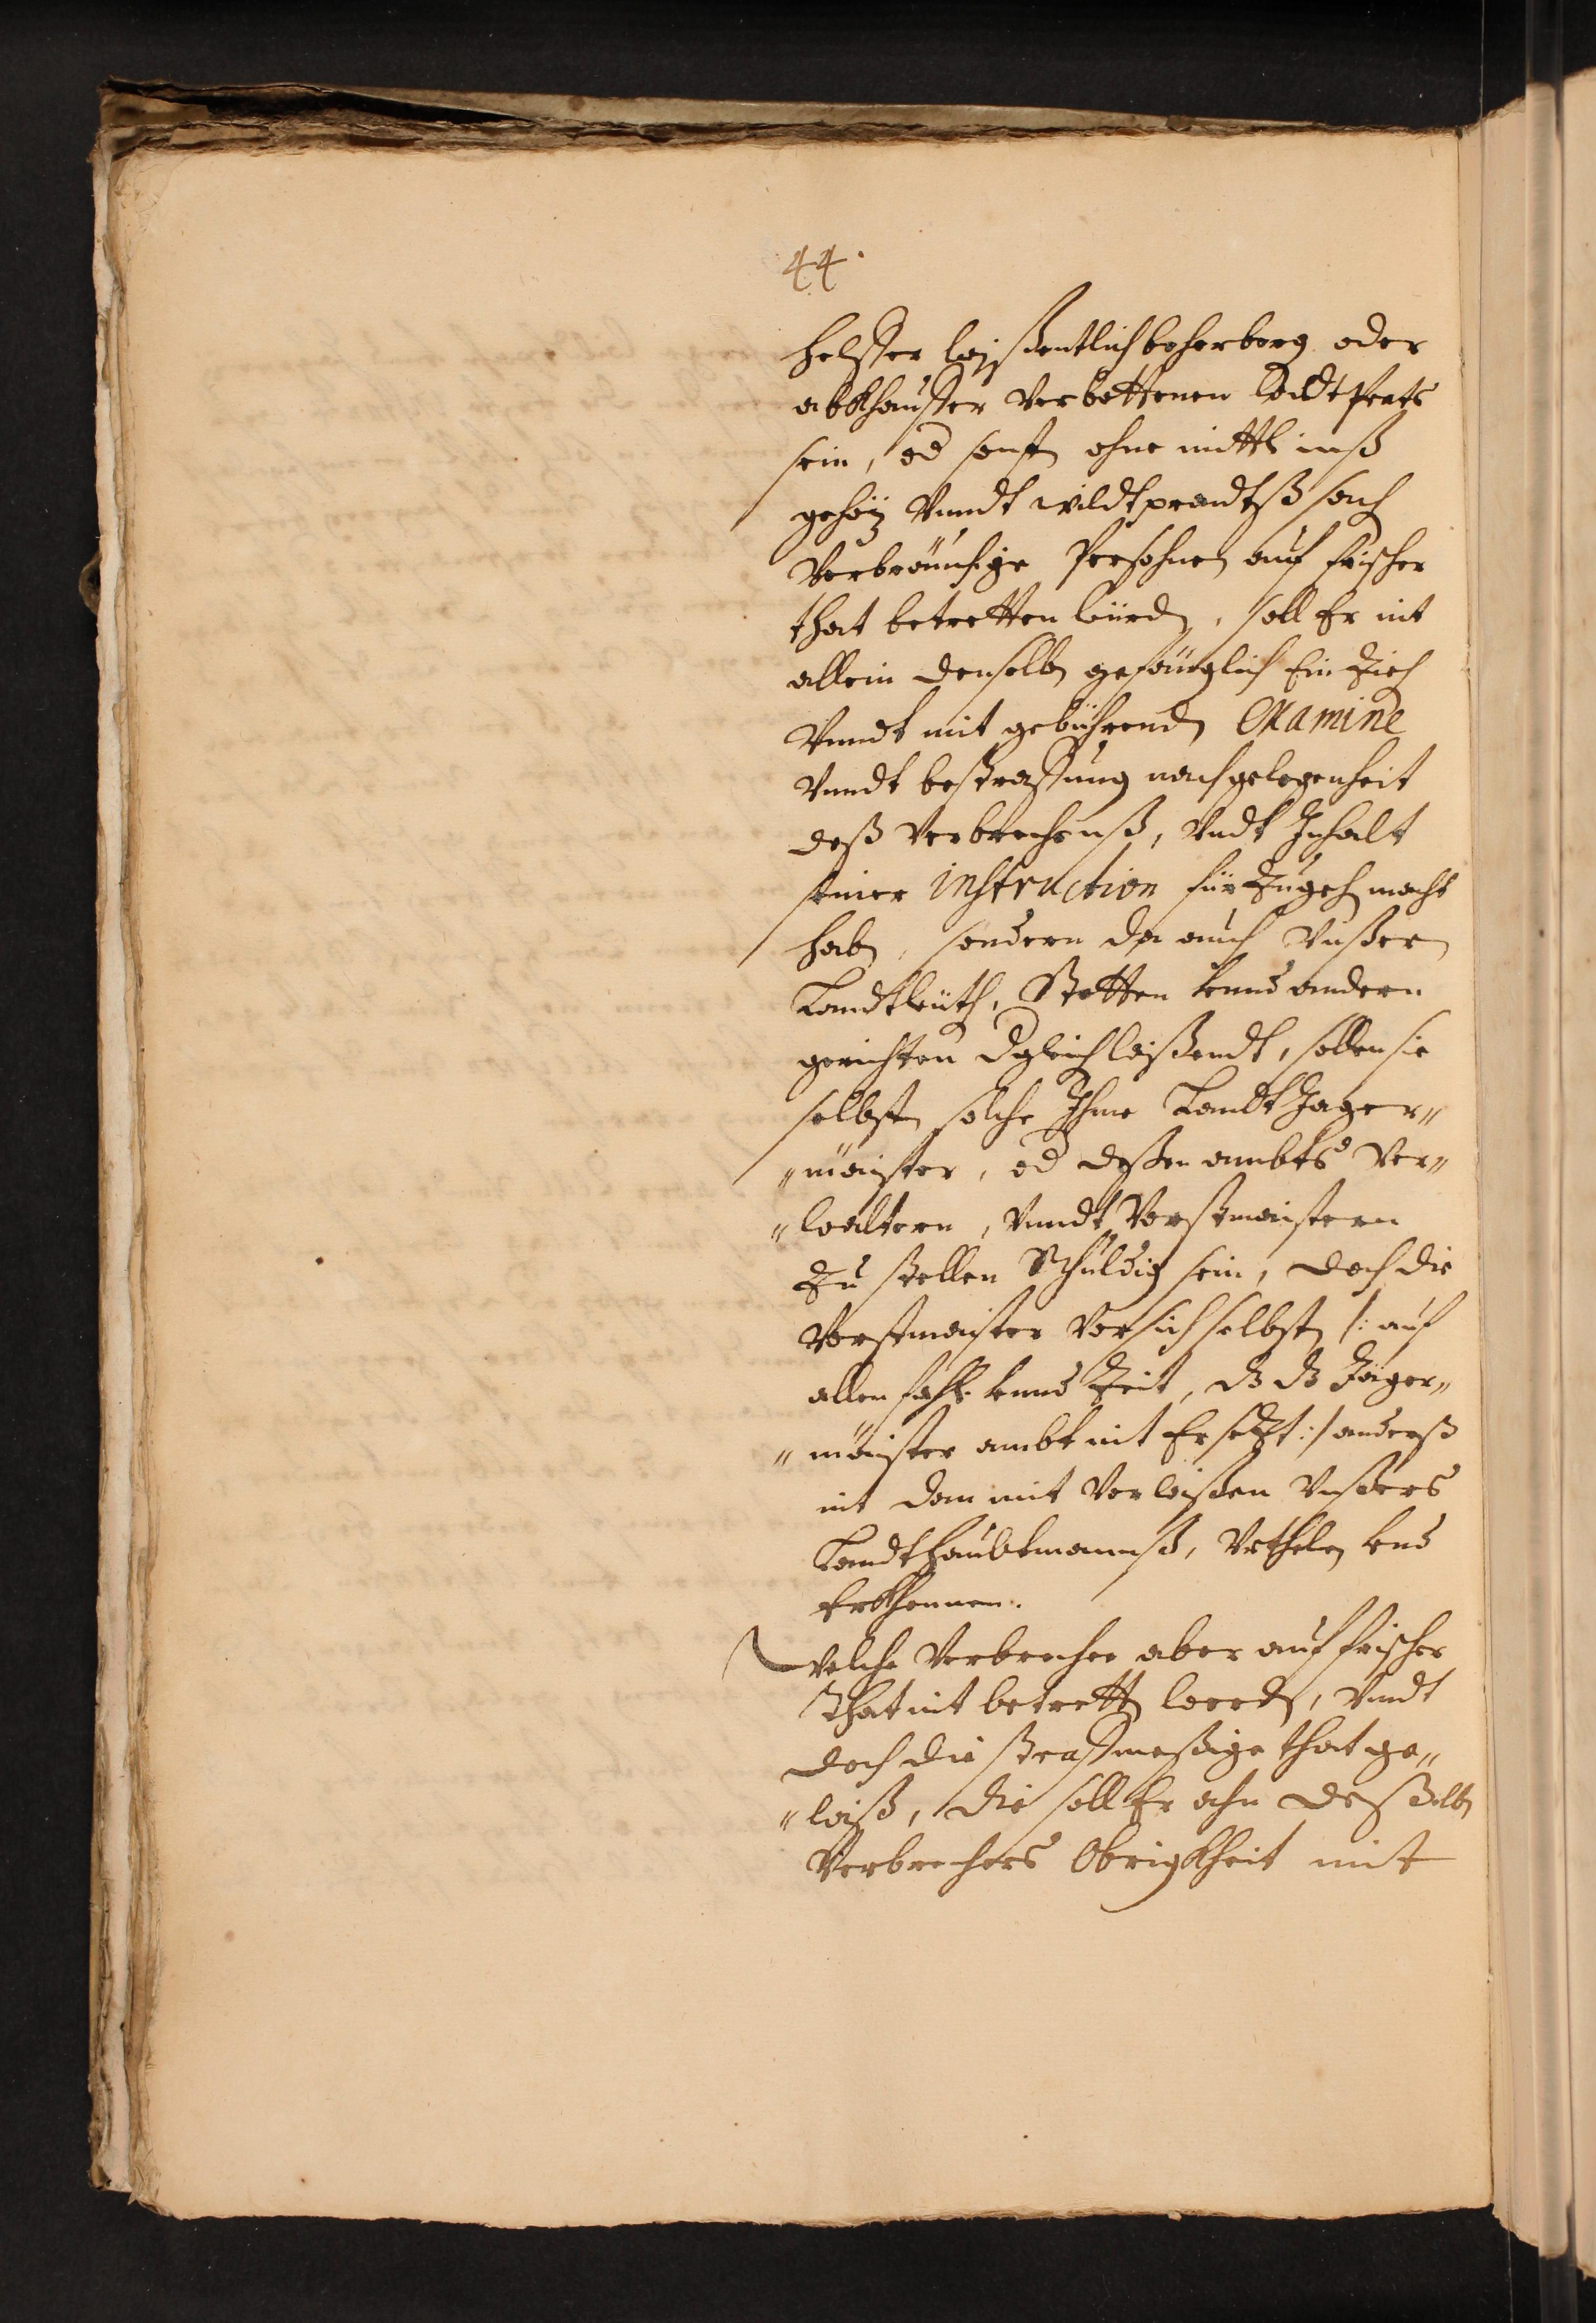 44.
helffer, wissentlich beherberg oder
abkhauffer Verbottenen Wildtprats
sein, od sonst ohne mittl inß
gehöz Vnndt wildtpradtß sach
Verbrüchige Persohnen auf frischer
that betretten würdn, soll Er nit
allein denselbn gefänglich Ein Ziehn
Vnndt mit gebührendn Examine
Vnndt bestraffung nach gelegenheit
deß Verbrechenß, Vndt Inhalt
seiner instruction für Zugehn macht
habn, sondern da auch Vnßern
Landtleüth, Stetten Vnnd andern
gerichten dgleich wißendt, sollen sie
selbstn solche Ihme Landt Jäger„
„maister, od deßen ambts Ver„
„waltern, Vnndt Vorstmaistern
Zu stellen Schuldig sein, doch die
Vorstmaister Vor sich selbstn /: auf
allen fahl Vnnd Zeit, dz dz Jäger„
„maister ambt nit Ersetzt :/ anderß
nit dan mit Vorwißen Vnßers
Landtshaubtmannß, Vrthlen Vnd
Erkhennen.
Welche Verbrecher aber auf frischer
That nit betrettn werdn, Vnndt
doch die straffmeßige that ge„
„wiß, die soll Er ahn deßelbn
Verbrechers Obrigkheit mit